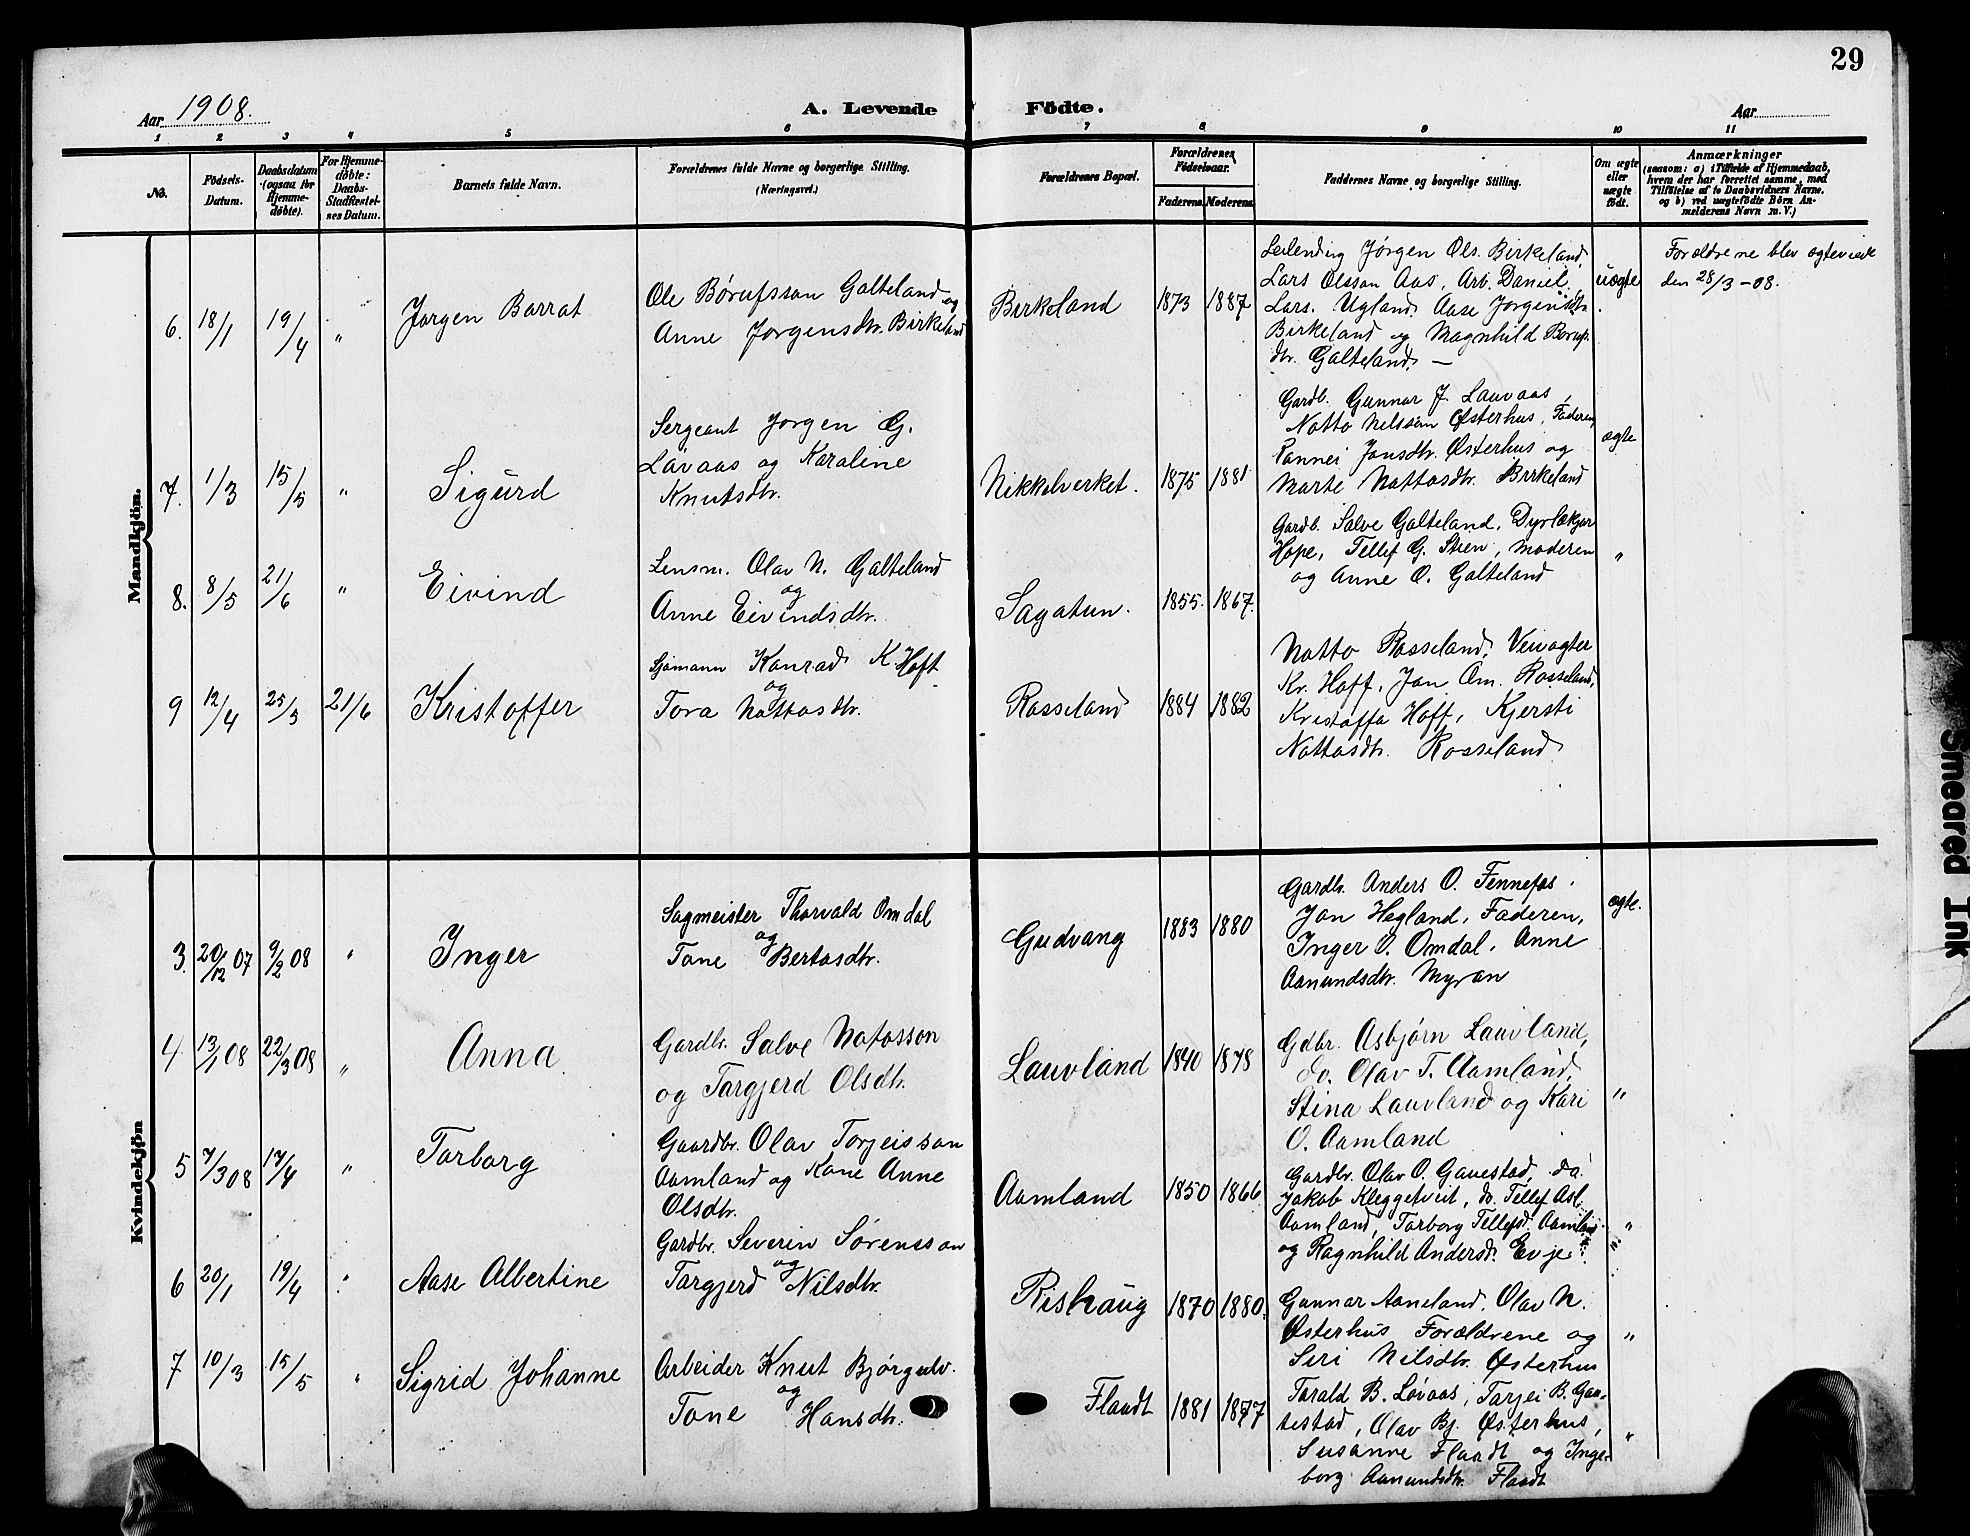 29
Aar 1908.
A. Levende Födte.
Aar
1 2 3 4 5 6 7 8 9 10 11
No.
Födsels-Datum.
Daabsdatum (ogsaa for Hjemme-døbte).
For Hjemme-døbte: Daabs-Stadfæstelses Datum.
Barnets fulde Navn.
Forældrenes fulde Navne og borgerlige Stilling.
(Næringsvei.)
Forældrenes Bopæl.
Forældrenes Födselsaar.
Faderens. Moderens.
Faddernes Navne og borgerlige Stilling.
Om ægte eller uægte födt.
Anmærkninger
(saasom: a) i Tilfælde af Hjemmedaab,
hvem der har forrettet samme, med
Tilföielse af to Daabsvidners Navne.
og b) ved uægtefödte Börn An-
melderens Navn m. V.)
Mandkjön.
6. 18/1 19/4 " Jørgen Barrat
Ole Børufsson Galteland og
Anne Jørgensdtr. Birkeland
Birkeland 1873 1887
Leilending Jørgen Ols. Birkeland,
Lars Olsson Aas, Arb. Daniel
Lars. Ugland, Aase Jørgensdtr.
Birkeland og Magnhild Boruf.
dtr. Galteland. —
uægte.
Forældrene blev ægteviede
den 28/3 - 08.
7. 1/3 15/5 " Sigurd
Sergeant Jørgen G.
Løvaas og Karaline
Knutsdtr.
Nikkelverket. 1875 1881
Gardb. Gunnar J. Lauvaas,
Natto Nilsson Østerhus, Faderen
Rannei Jonsdtr. Østerhus og
Marte Nattosdtr. Birkeland
ægte
8. 8/5 21/6 " Eivind
Lensm. Olav N. Galteland
og
Anne Eivindsdtr.
Sagatun. 1855. 1867.
Gardb. Salve Galteland, Dyrlækjar
Hope, Tellef G. Stien, Moderen
og Anne O. Galteland
"
9 12/4 25/5 21/6 Kristoffer
Sjømann Konrad K. Hoft
og
Tora Nattosdtr.
Rosseland 1884 1882
Natto Rosseland, Veivogter
Kr. Hoff, Jon Om. Rosseland,
Kristoffa Hoff, Kjersti
Nattosdtr. Rosseland
Kvindekjön
3. 20/12 07 9/2 08 " Inger
Sagmeister Thorvald Omdal
og
Tone Bertosdtr.
Gudvang 1883 1880
Gardbr. Anders O. Fennefos.
Jon Hegland, Faderen,
Inger O. Omdal, Anne
Aanundsdtr. Myran
ægte.
4. 13/1 08 22/3 08 " Anna
Gardbr. Salve Natosson
og Targjerd Olsdtr.
Lauvland 1840 1878
Gdbr. Asbjørn Lauvland,
do. Olav T. Aamland,
Stina Lauvland og Kari
O. Aamland
"
5 7/3 08 17/4 " Torborg
Gaardbr. Olav Torjeisson
Aamland og Kone Anne
Olsdtr.
Aamland 1850 1866
Gardbr. Olav O. Gauestad, do
Jakob Kleggetveit, do. Tellef Asl.
Aamland, Torborg Tellefsd. Aamland
og Ragnhild Andersd. Evje.
"
6 20/1 19/4 " Aase Albertine
Gardbr. Severin Sørensson
og
Targjerd Nilsdtr.
Rishaug 1870 1880.
Gunnar Aaneland, Olav N.
Østerhus Forældrene og
Siri Nilsdtr. Østerhus
"
7 10/3 15/5 " Sigrid Johanne
Arbeider Knut Bjørgulv.
og
Tone Hansdtr.
Flaadt 1881 1877
Torald B. Løvaas, Tarjei B. Gau-
estad, Olav Bj. Østerhus,
Susanne Flaadt og Inge-
borg Aanundsdtr. Flaadt
"
Smeared Ink